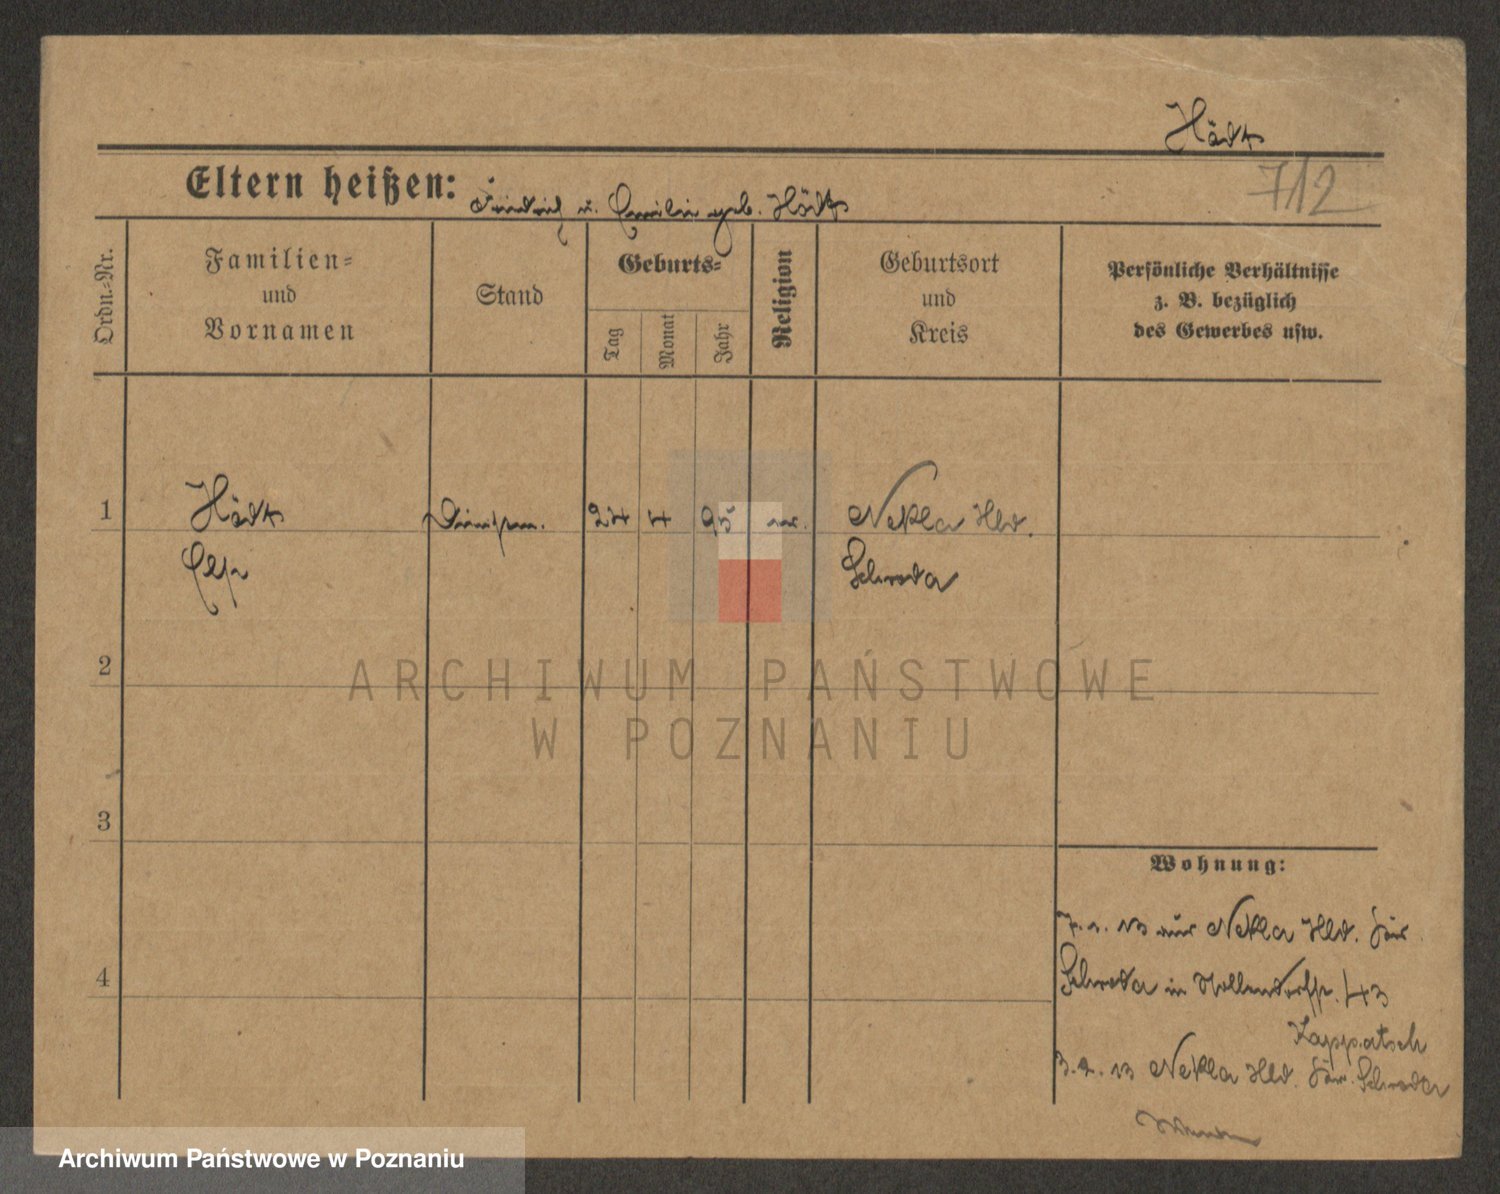 Hädt
712
Eltern heißen: Friedrich u. Emilie geb. Hädt
Ordn.-Nr.
Familien-
und
Vornamen
Stand
Geburts-
Tag
Monat
Jahr
Religion
Geburtsort
und
Kreis
Persönliche Verhältnisse
z. B. bezüglich
des Gewerbes usw.
1
Hädt
24 4 95
Nekla Hld.
Schroda
2
3
4
Wohnung:
13 aus Nekla Hld. Kr.
Schroda in 43
Kappatsch
13 Nekla Hld. Kr. Schroda
ARCHIWUM PAŃSTWOWE
W POZNANIU
Archiwum Państwowe w Poznaniu